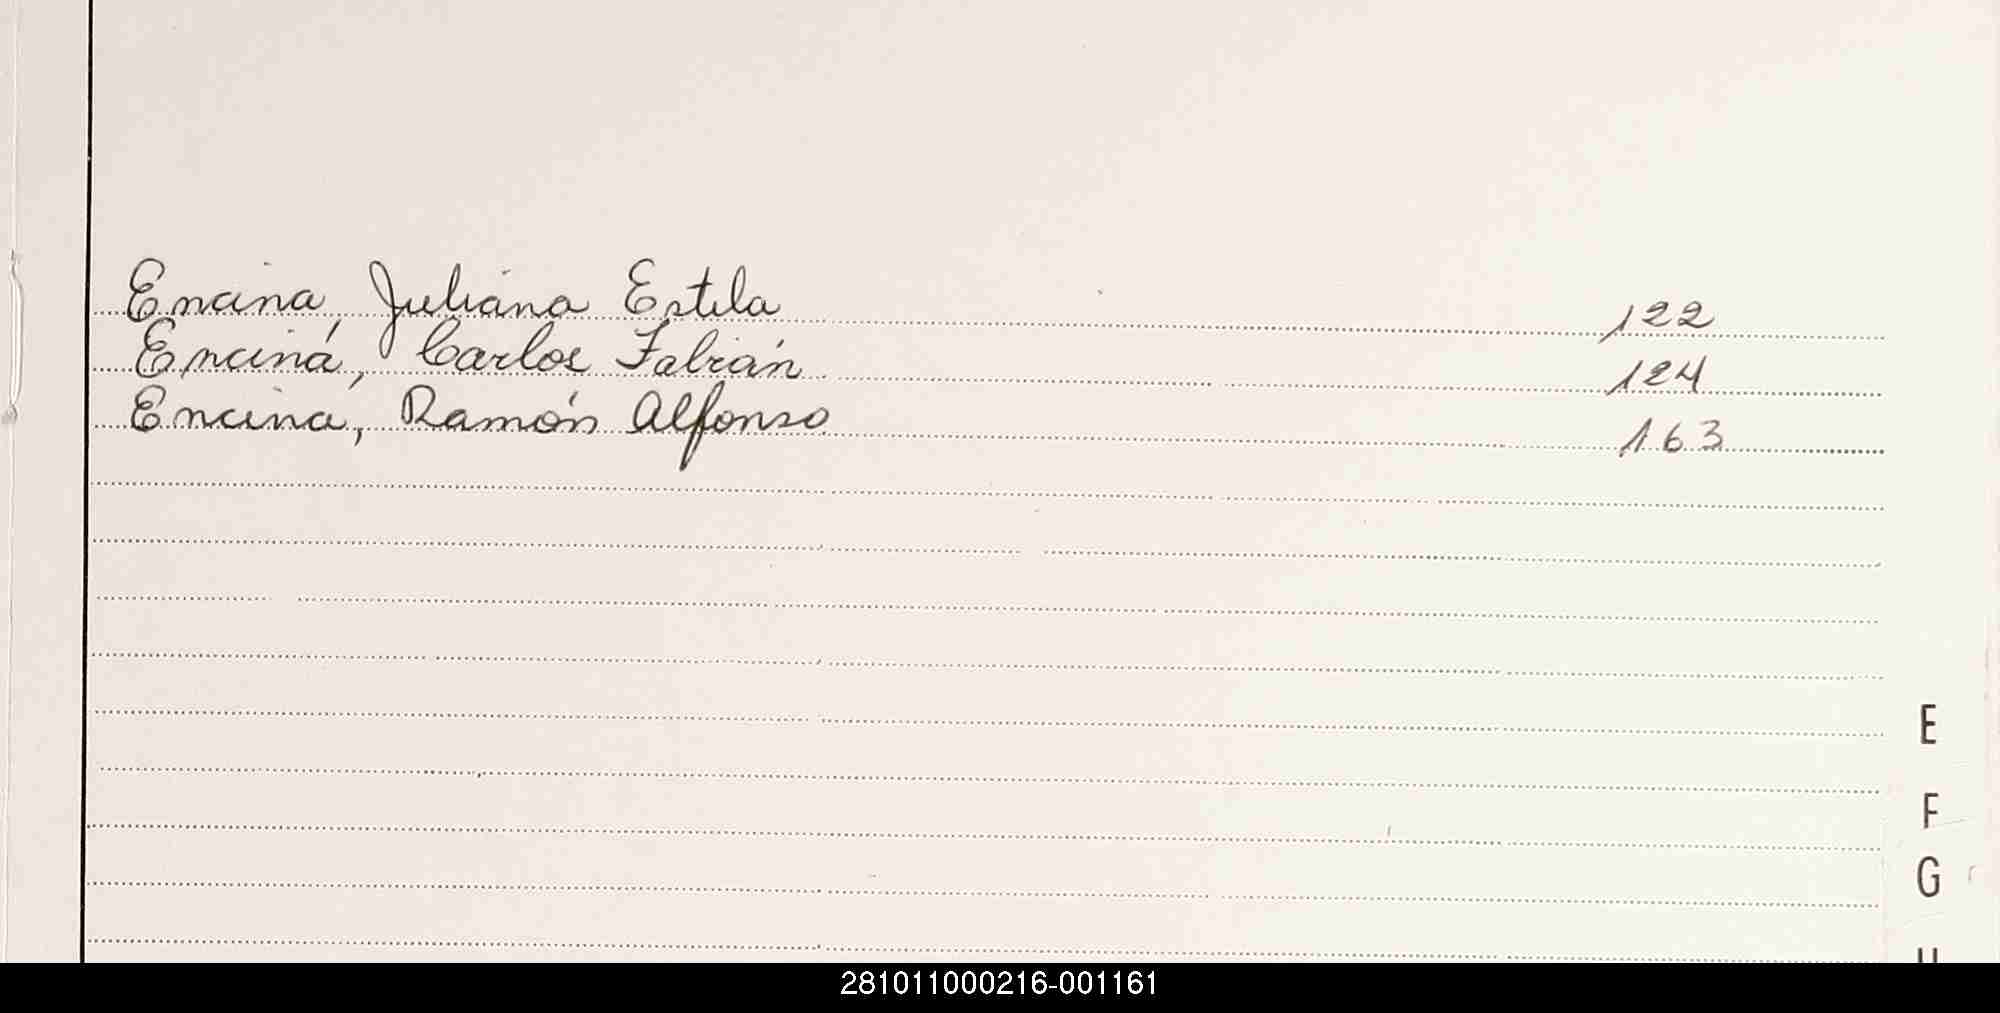 Encina, Juliana Estela 122
Encina, Carlos Fabián 124
Encina, Ramón Alfonso 163
E
F
G
281011000216-001161